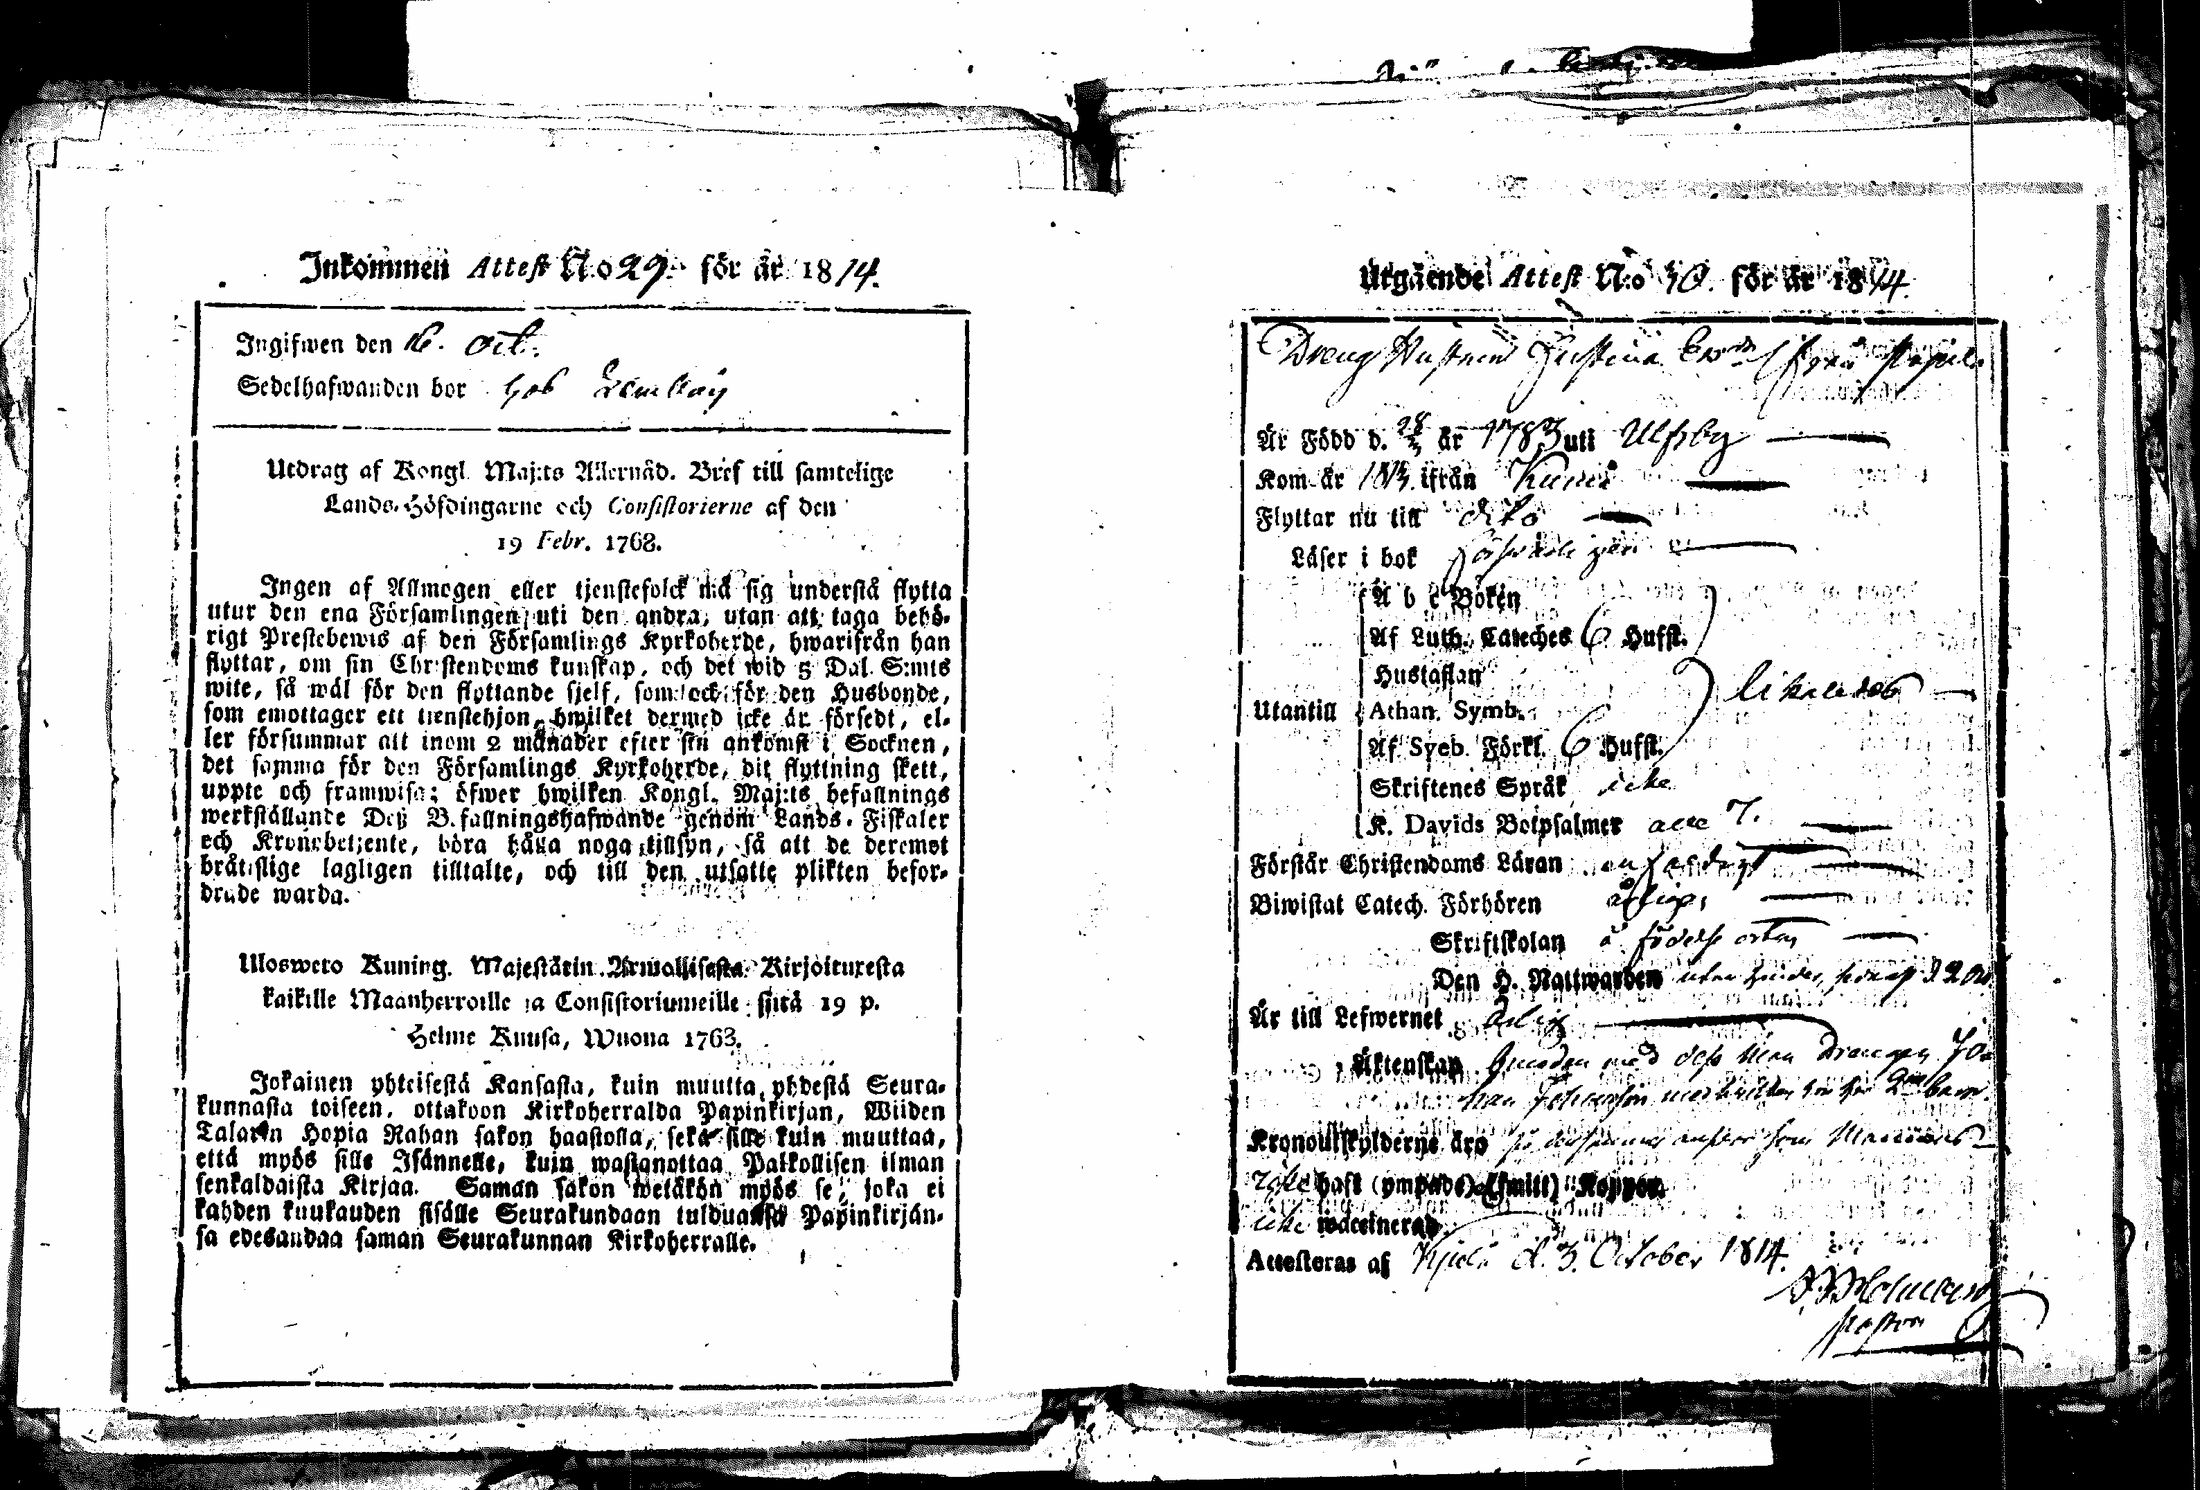 Inkommen Attest N:o 29. för år 1814.
Ingifwen den 16. Oct.
Sedelhafwanden bor hos
Utdrag af Kongl. Maj:ts Allernåd. Bref till samtelige
Lands-Höfdingarne och Consistorierne af den
19 Febr. 1768.
Ingen af Allmogen eller tjenstefolck må sig understå flytta
utur den ena Församlingen uti den andra, utan att taga behö-
rigt Prestebewis af den Församlings Kyrkoherde, hwarifrån han
flyttar, om sin Christendoms kunskap, och det wid 5 Dal. S:mts
wite, så wäl för den flyttande sjelf, som ock för den Husbonde,
som emottager ett tienstehjon, hwilket dermed icke är försedt, el-
ler försummar att inom 2 månader efter sin ankomst i Socknen,
det samma för den Församlings Kyrkoherde, dit flyttning skett,
uppte och framwisa; öfwer hwilken Kongl. Maj:ts befallnings
werkställande Deß B.fallningshafwande genom Lands-Fiskaler
och Kronobetjente, böra hålla noga tillsyn, så att de deremot
bråtslige lagligen tilltalte, och till den utsatte plikten befor-
drade warda.
Uloswето Kuning. Majestätin Armollisesta Kirjoituxesta
kaikille Maanherroille ja Consistoriumeille siitä 19 p.
Helme Kuusa, Wuona 1763.
Jokainen yhteisestä Kansasta, kuin muutta yhdestä Seura-
kunnasta toiseen, ottakoon Kirkoherralda Papinkirjan, Wiiden
Talarin Hopia Rahan sakon haastolla, sekä sille kuin muuttaa,
että myös sille Isännelle, kuin wastanottaa Palkollisen ilman
senkaldaista Kirjaa. Saman sakon wetäkön myös se, joka ei
kahden kuukauden sisälle Seurakundaan tulduansa Papinkirjän-
sa edesandaa saman Seurakunnan Kirkoherralle.
Utgående Attest N:o 30. för år 1814.
Dreng Hustrun Justina
Är Född d. 28 år 1783 uti Ulfsby
Kom år 1813 ifrån Kumo
Flyttar nu till dito
Läser i bok
A b c Boken
Af Luth. Cateches 6 Hufst.
Hustaflan
Utantill Athan. Symb. likaledes
Af Sveb. Förkl. 6 Hufst.
Skriftenes Språk icke
K. Davids Botpsalmer alle 7.
Förstår Christendoms Läran enfaldigt
Biwistat Catech. Förhören årlig.
Skriftskolan å födelse orten
Den H. Nattwarden utan hinder,
Är till Lefwernet ärlig
Äktenskap med dess Man Drengen Jo
han
Kronoutskylderne äro
icke haft (ympade) (smitt) Koppor
icke waccinerad
Attesteras af Kjulo d. 3. October 1814.
Pastor